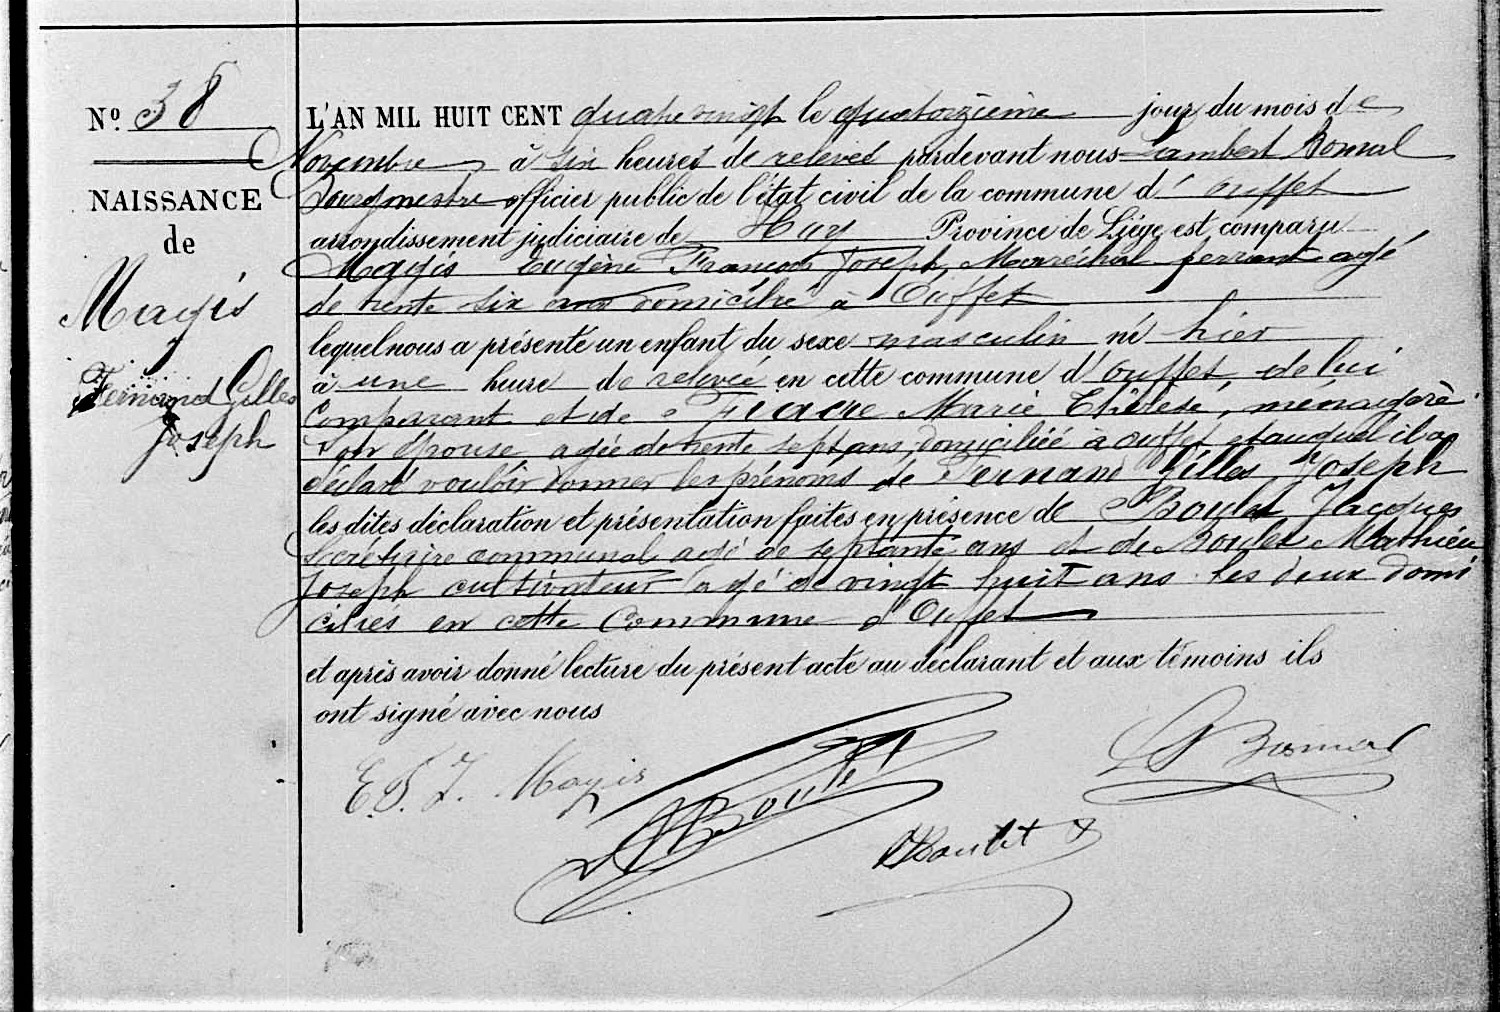 Nº 38
NAISSANCE
de
Magis
Fernand Gilles
Joseph
L'AN MIL HUIT CENT quatre vingt le quatorzième jour du mois de
Novembre à six heures de relevée pardevant nous Lambert Bomal
Bourgmestre officier public de l'état civil de la commune d'Ouffet
arrondissement judiciaire de Huy Province de Liége est comparu
Magis Eugène François Joseph, Maréchal ferrant agé
de trente six ans domicilié à Ouffet
lequel nous a présenté un enfant du sexe masculin né hier
à une heure de relevée en cette commune d'Ouffet, de lui
Comparant et de Fiacre Marie Thérèse, ménagère
son épouse agée de trente sept ans, domiciliée à Ouffet et auquel il a
déclaré vouloir donner les prénoms de Fernand Gilles Joseph
les dites déclaration et présentation faites en présence de Boulet Jacques
Secrétaire communal agé de septante ans et de Boulet Mathieu
Joseph cultivateur agé de vingt huit ans les deux domi
ciliés en cette Commune d'Ouffet
et après avoir donné lecture du présent acte au déclarant et aux témoins ils
ont signé avec nous
E. F. J. Magis
Boulet
L Bomal
Boulet